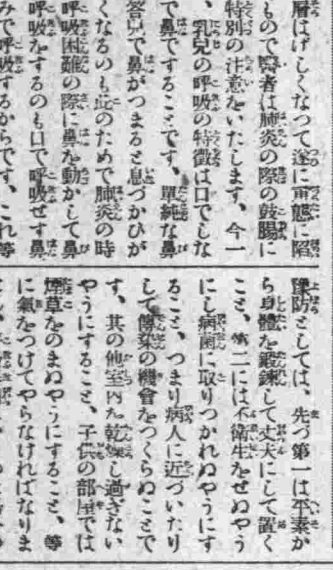 層はげしくなつて遂に重態に陷
もので醫者は肺炎の際の鼓腸に
特別の注意をいたします、今一
、乳兒の呼吸の特徴は口でしな
で鼻ですることです、單純な鼻
で鼻がつまると息づかひが
くなるのも此のためで肺炎の時
呼吸困難の際に鼻を動かして鼻
呼吸をするのも口で呼吸せず鼻
みで呼吸するからです、これ等
豫防としては、先づ第一は平素か
ら身體を鍛錬して丈夫にして置く
こと、第二には不衛生をせぬやう
にし病菌に取りつかれぬやうにす
ること、つまり病人に近づいたり
して傳染の機會をつくらぬことで
す、其の他室内を乾燥し過ぎない
やうにすること、子供の部屋では
煙草をのまぬやうにすること、等
に氣をつけてやらなければなりま